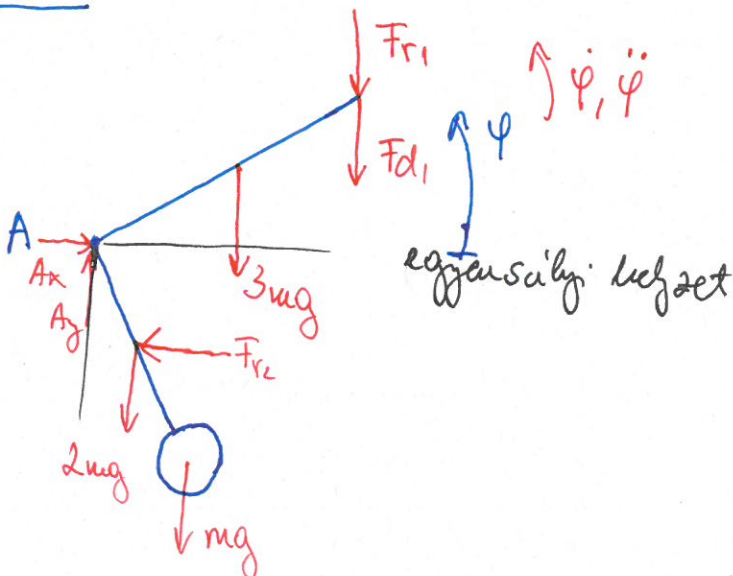 F_r₁
φ̇, φ̈
φ
F_d₁
A
A_x
A_y
3mg
egyensúlyi helyzet
F_r₂
2mg
mg